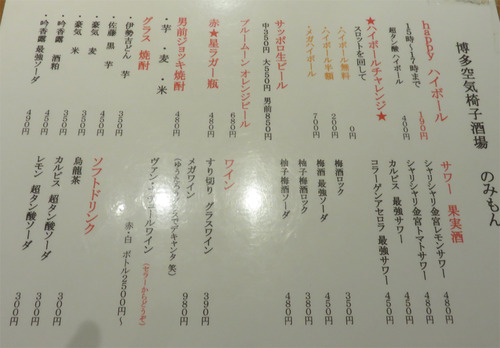 博多空気椅子酒場 のみもん
happy ハイボール 190円
15時〜17時まで
超タンサン ハイボール 400円
★ハイボールチャレンジ★
スロットを回して
・ハイボール無料 0円
・ハイボール半額 200円
・メガハイボール 700円
サッポロ生ビール
中350円 大550円 男前850円
ブルームーン オレンジビール 680円
赤★星ラガー 瓶 480円
男前ジョッキ焼酎
・芋 ・麦 ・米 480円
グラス 焼酎
・伊勢吉どん 芋 350円
・佐藤 黒 芋 450円
・豪気 麦 350円
・豪気 米 350円
・吟香露 酒粕 400円
・吟香露 最強ソーダ 450円
サワー 果実酒
シャリシャリ金宮レモンサワー 480円
シャリシャリ金宮トマトサワー 480円
カルピス 最強サワー 450円
コラーゲンアセロラ 最強サワー 450円
梅酒ロック 350円
梅酒 最強ソーダ 450円
柚子梅酒ロック 380円
柚子梅酒ソーダ 480円
ワイン
すり切り グラスワイン 390円
メガワイン 980円
赤・白 ボトル2500円〜
ソフトドリンク
烏龍茶 300円
カルピス 超タンサンソーダ 300円
レモン 超タンサンソーダ 300円